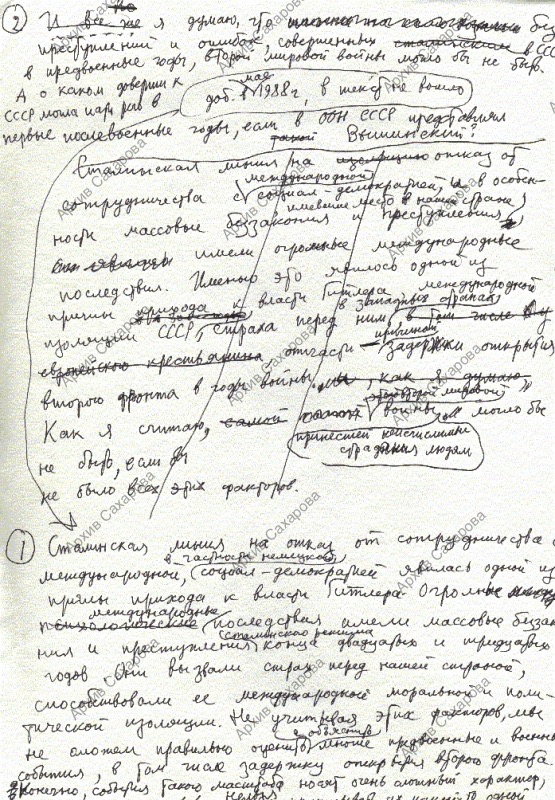 ② И все же я думаю, что без
преступлений и ошибок, совершенных в СС
в предвоенные годы, второй мировой войны могло бы не быть.
А о каком доверии к
доб. 1 мая 1988 г, в текст не вошло
СССР могла идти речь в
первые послевоенные годы, если в ООН СССР представлял
такой Вышинский?
Сталинская линия на отказ от
международной
сотрудничества с социал-демократией, и в особен-
имевшие место в нашей стране,
ности массовые беззакония и преступления,
имели огромные международные
последствия. Именно это явилось одной из
причин прихода к власти Гитлера, международной
в западных странах
изоляции СССР, страха перед ним, в том числе
причиной
отчасти задержки открытия
второго фронта в годы войны, как я думаю
этой второй мировой
Как я считаю, самой войны могло бы
принесшей неисчислимые
страдания людям
не быть, если бы
не было всех этих факторов.
① Сталинская линия на отказ от сотрудничества с
в частности немецкой,
международной, социал-демократией явилась одной из
причин прихода к власти Гитлера. Огромные
международные
психологические последствия имели массовые беззако-
сталинского режима
ния и преступления конца двадцатых и тридцатых
годов. Они вызвали страх перед нашей страной,
способствовали ее международной моральной и поли-
тической изоляции. Не учитывая этих факторов, мы
и объяснить
не сможем правильно оценить многие предвоенные и военные
события, в том числе задержку открытия второго фронта.
Конечно, события такого масштаба носят очень сложный характер,
нельзя
Архив Сахарова